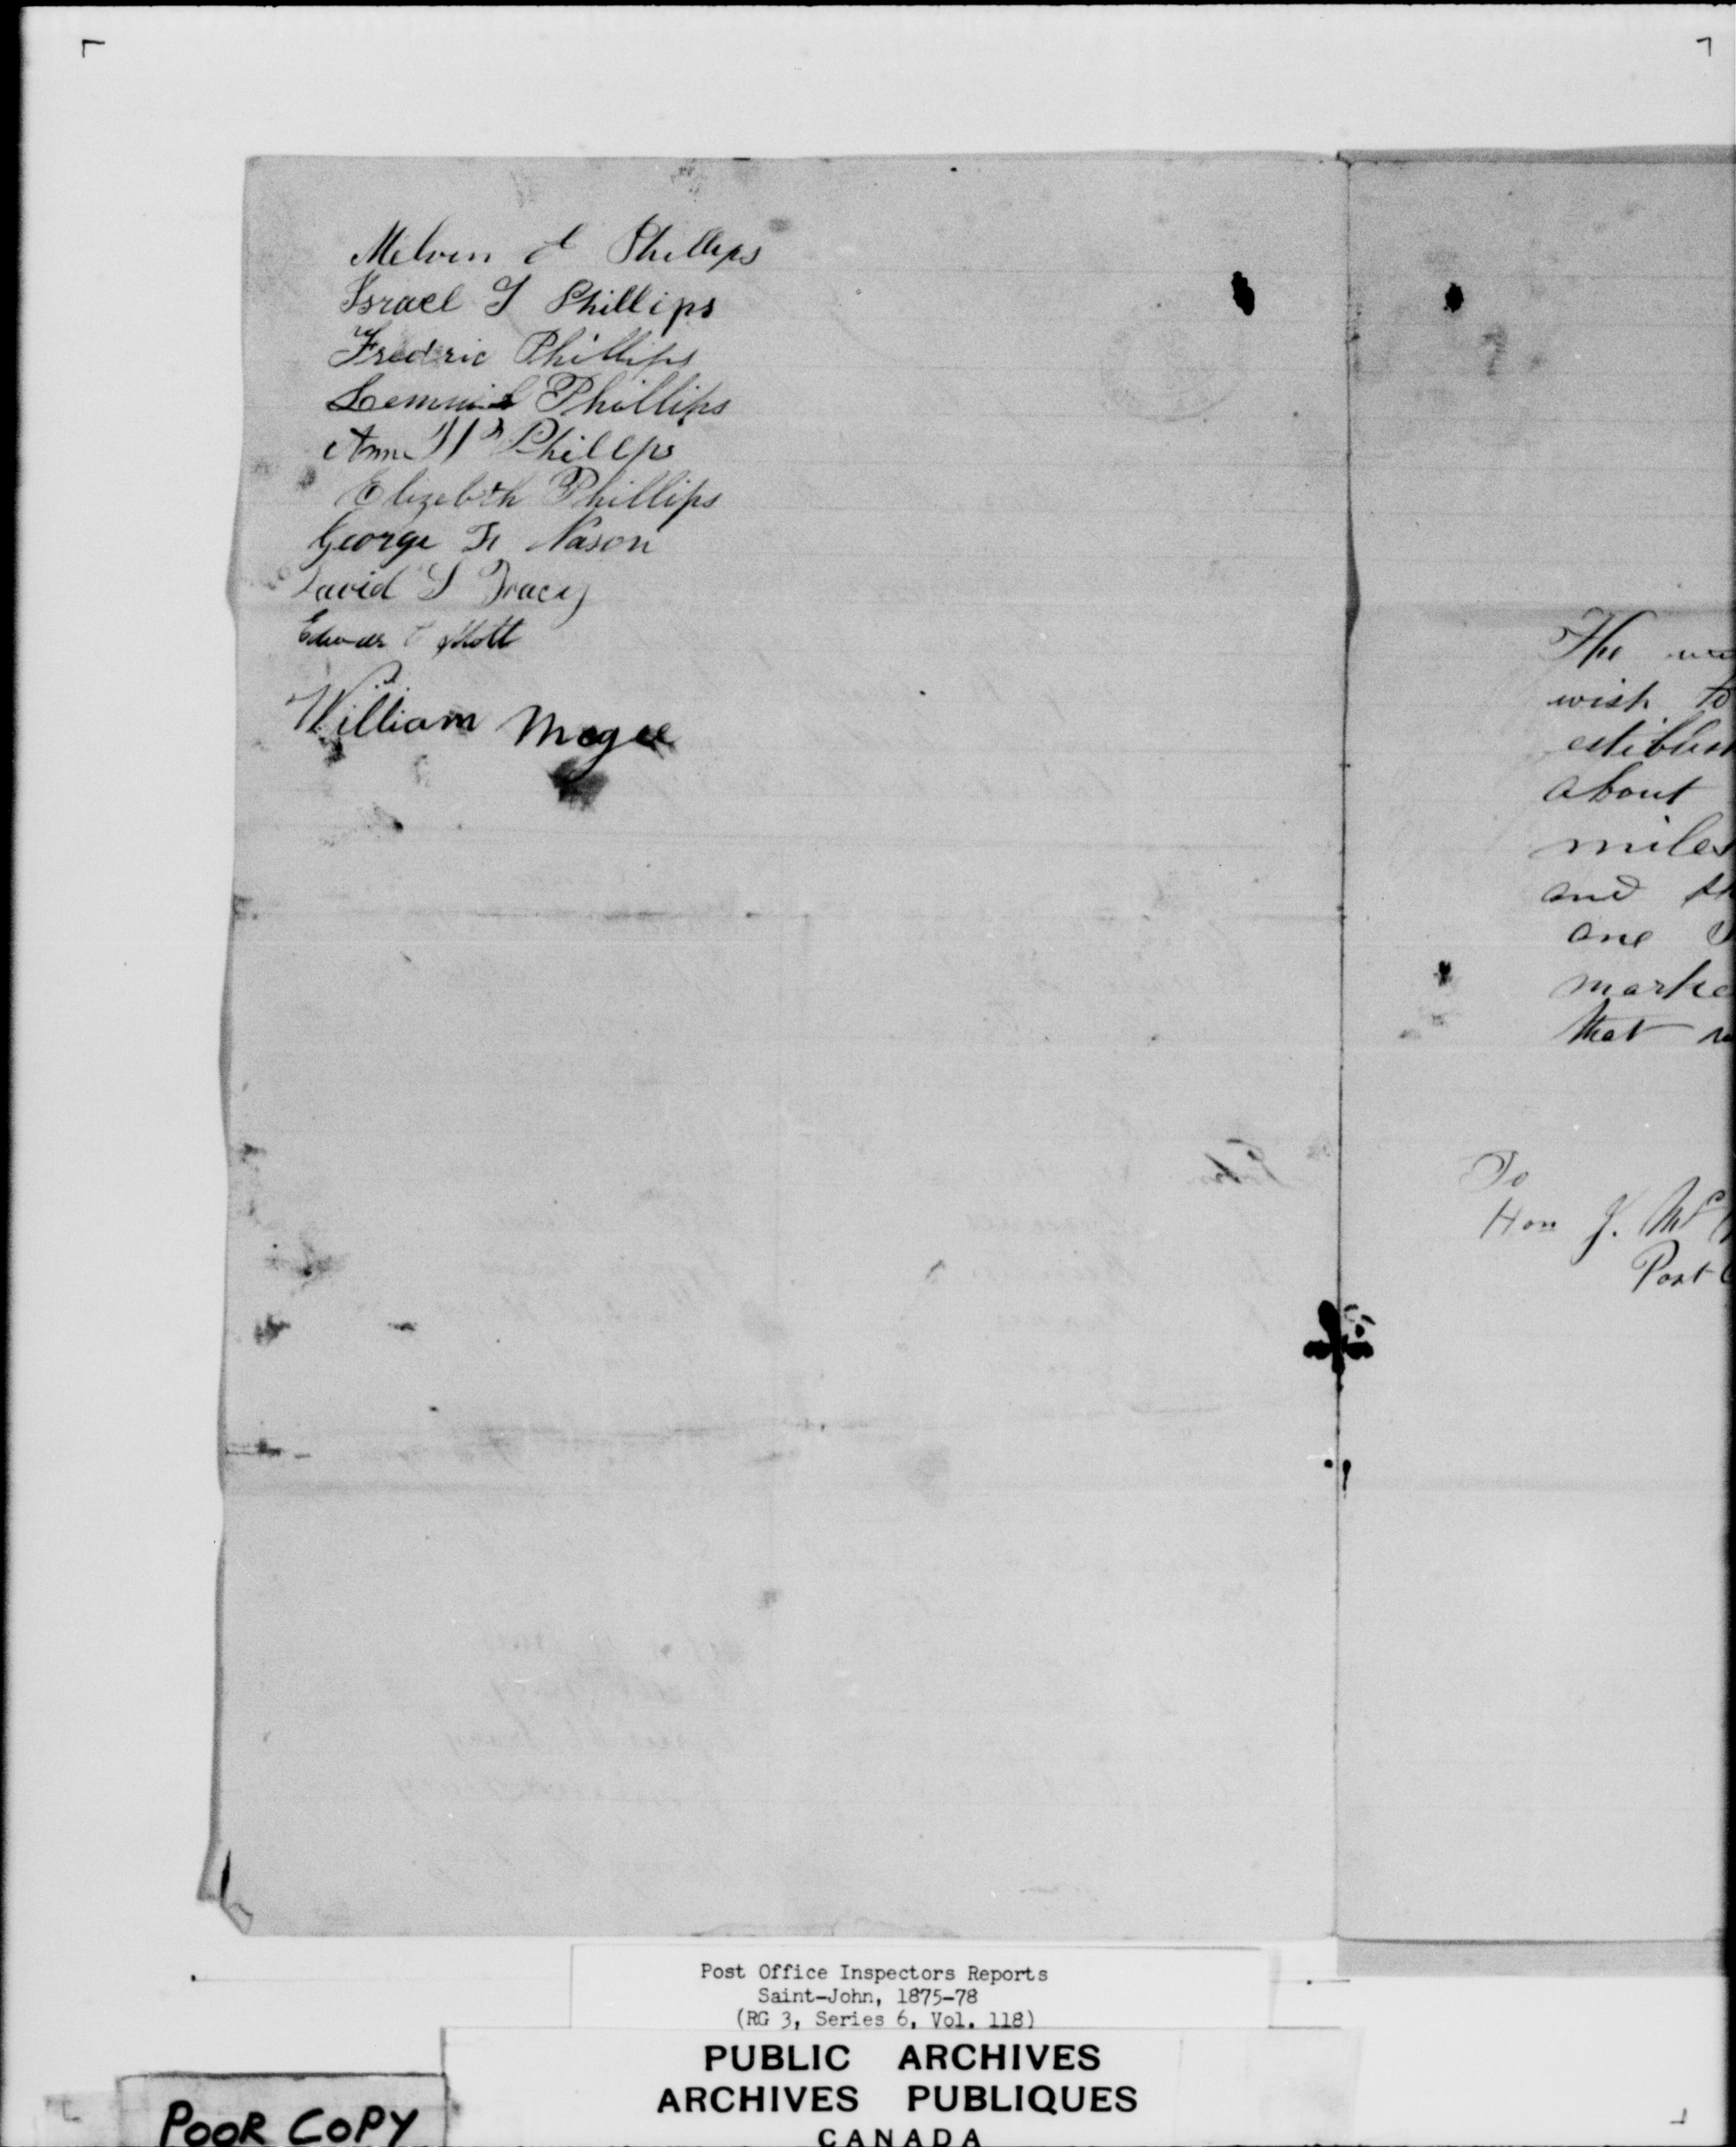 Melvin Phillips
Israel I Phillips
Fredric Phillips
Lemuil Phillips
Ann Philleps
Elizebeth Phillips
George F Nason
David S Tracy
Mott
William Mcgee
The
wish to
about
miles
and
one
that
To
Hon J. Mc
Post
Post Office Inspectors Reports
Saint-John, 1875-78
(RG 3, Series 6, Vol. 118)
PUBLIC ARCHIVES
ARCHIVES PUBLIQUES
CANADA
POOR COPY